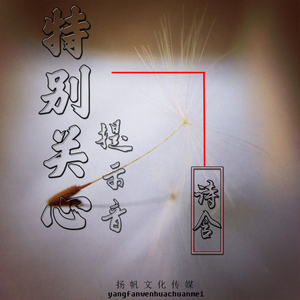 特别关心
提示音
诗舍
扬帆文化传媒
yangfanwenhuachuanmei